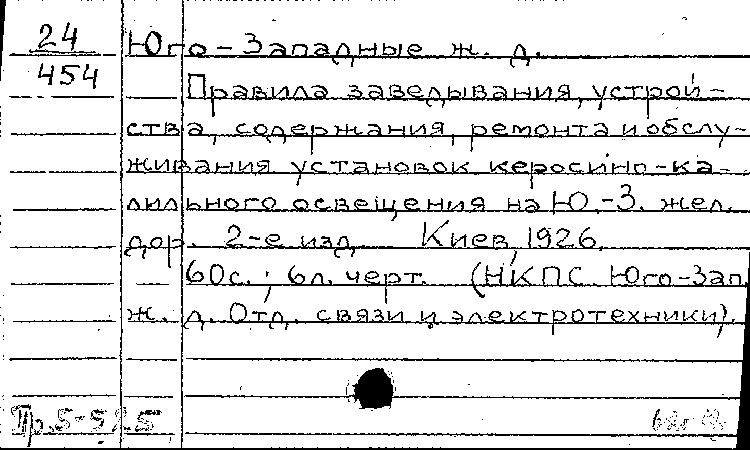 24
454
Юго-Западные ж. д.
Правила заведывания, устрой-
ства, содержания, ремонта и обслу-
живания установок керосино-ка-
лильного освещения на Ю.-З. жел.
дор. 2-е изд. Киев, 1926.
60с.; 6л. черт. (НКПС. Юго-Зап.
ж. д. Отд. связи и электротехники).